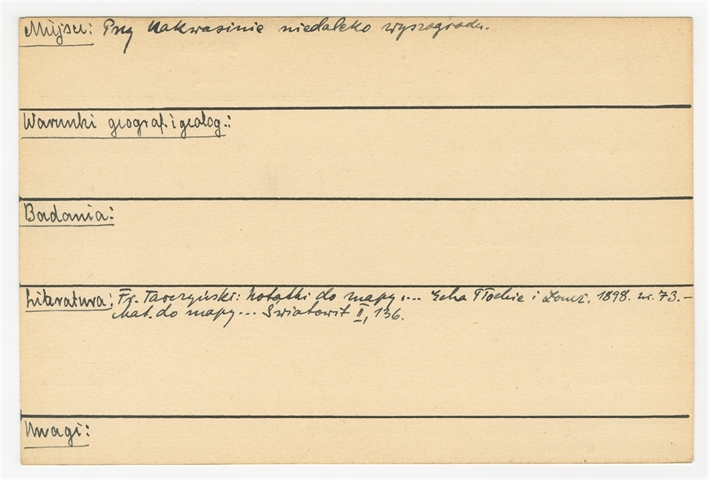 Miejsce: Przy Nakwasinie niedaleko Wyszogrodu.
Warunki geograf. i geolog.:
Badania:
Literatura: Fr. Tarczyński: Notatki do mapy... Echa Płockie i Łomż. 1898. nr. 73.–
Mat. do mapy... Światowit II, 136.
Uwagi: